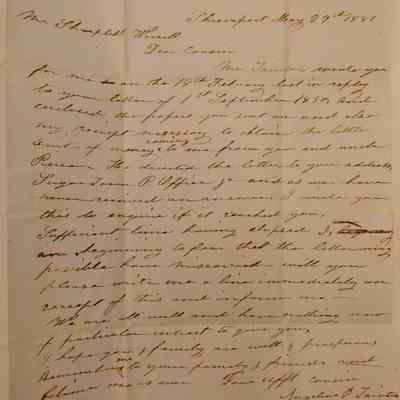 Shreveport May 29th 1851
Mr Sharpless Worrell
Dear Cousin
Mr Tainter wrote you
for me on the 14th February last in reply
to your letter of 1st September 1850, and
enclosed the papers you sent on and also
my receipt necessary to obtain the little
amt. of money coming to me from you and uncle
Pierson. He directed the letter to your address,
P. Office & and as we have
never received an answer I write you
this to enquire if it reached you,
Sufficient time having elapsed I,
am beginning to fear that the letter may
possible have miscarried - will you
please write me a line immediately on
receipt of this and inform me -
We are all well and have nothing new
of particular interest to give you,
I hope you & family are well & prosperous
Remember me to your family & friends and
believe me as ever Your afft cousin
Angelina P. Tainter